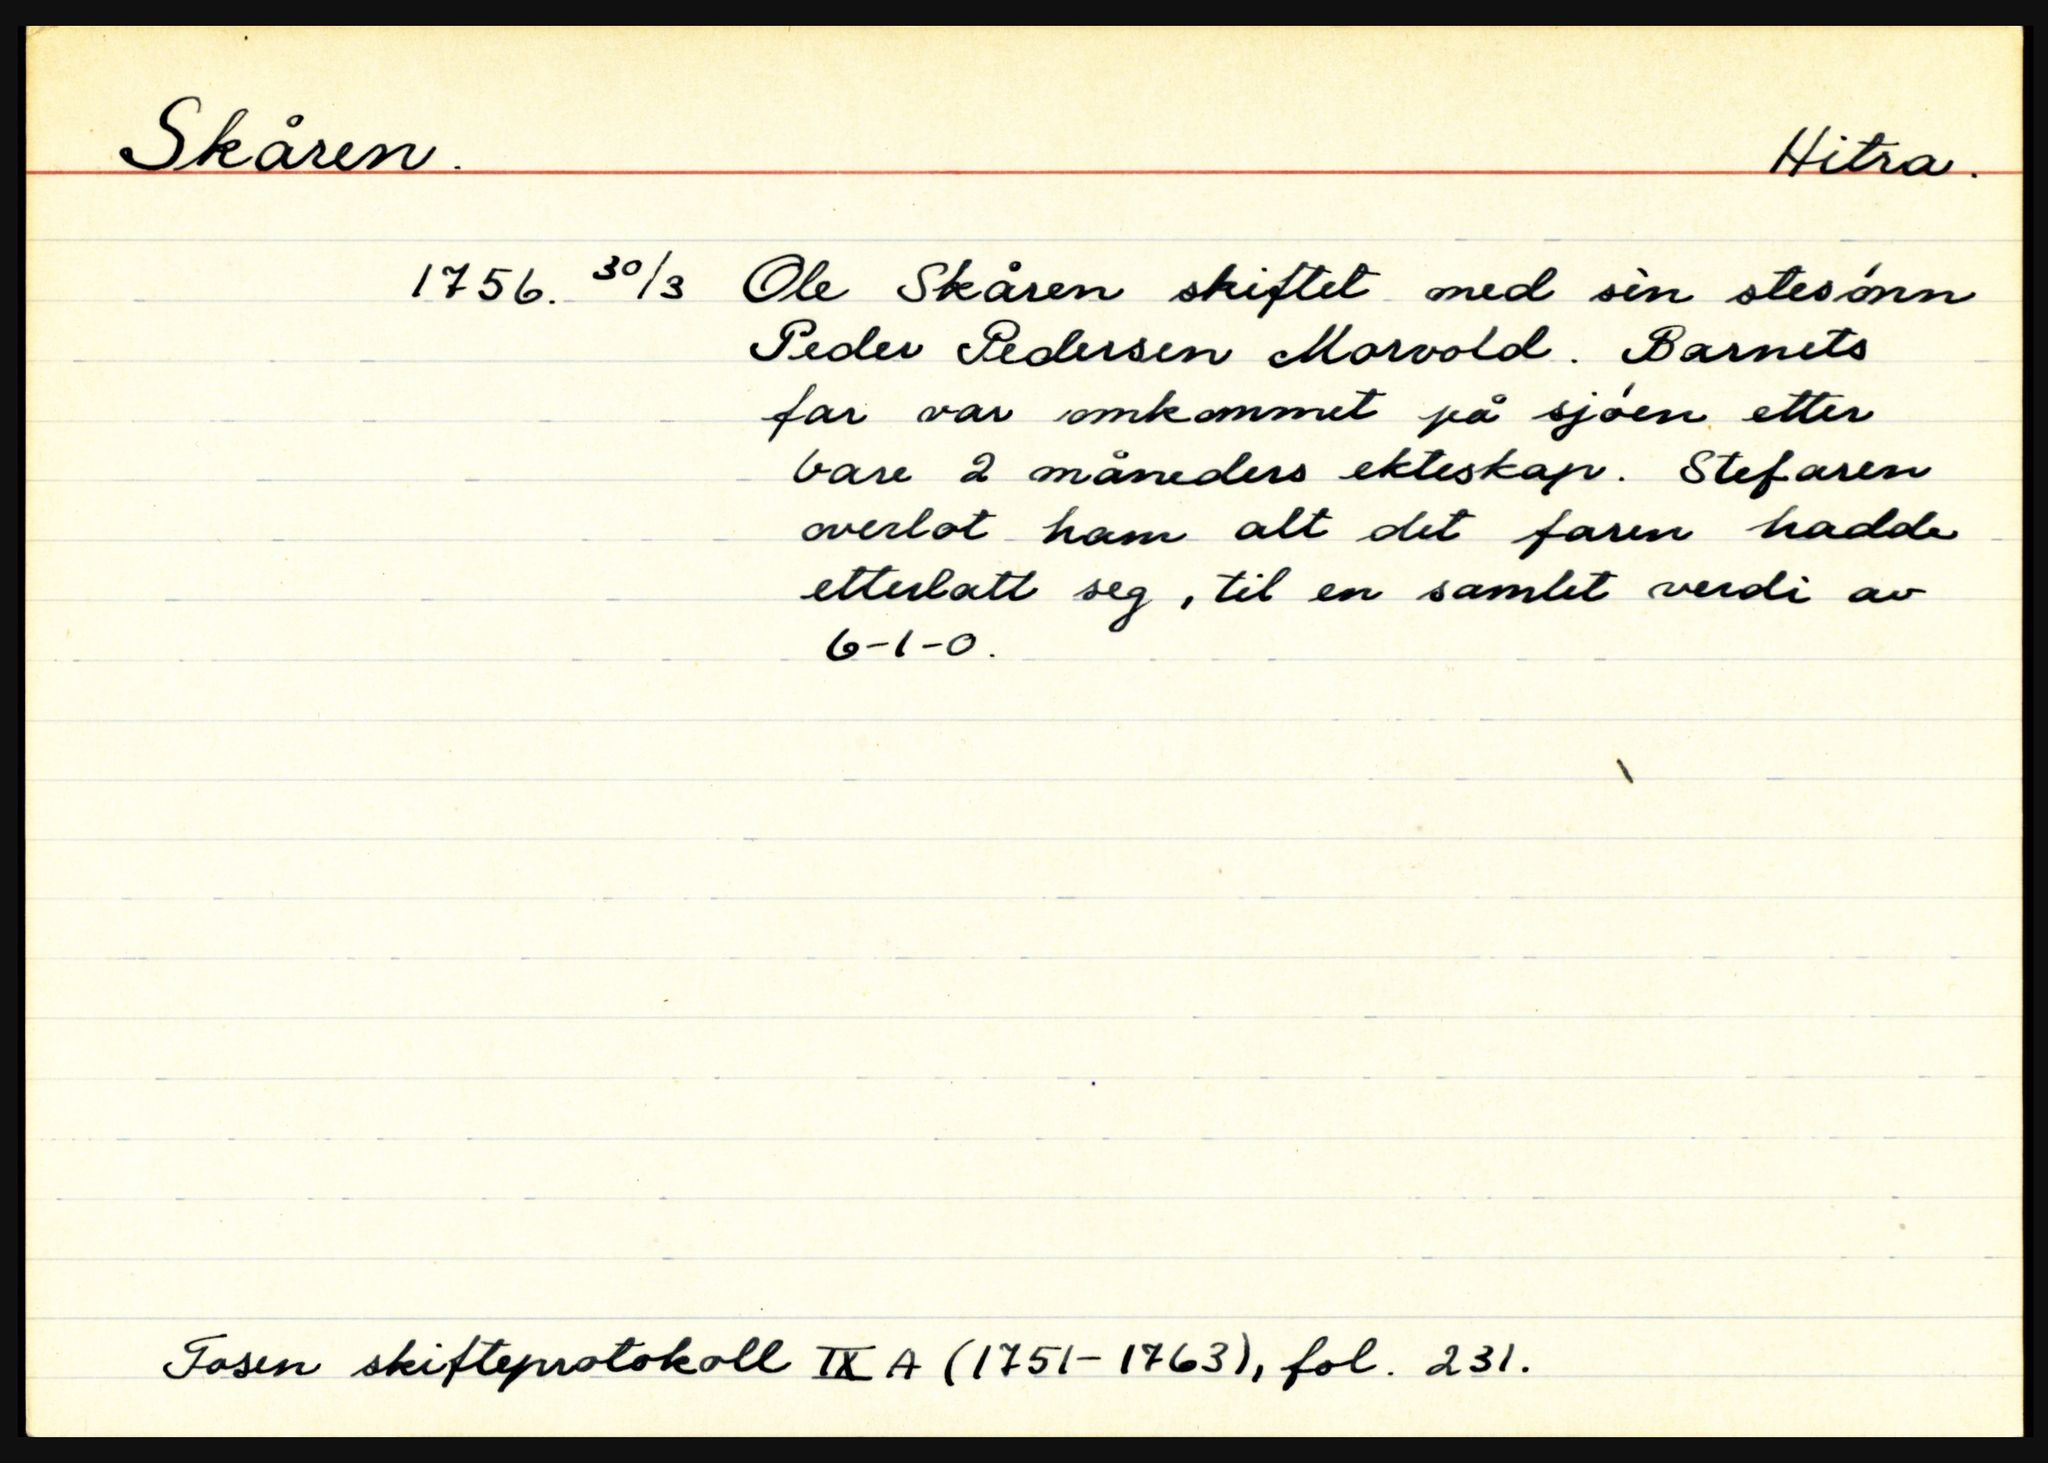 Skåren. Hitra.
1756. 30/3 Ole Skåren skiftet med sin stesönn
Peder Pedersen Morvold. Barnets
far var omkommet på sjöen etter
bare 2 måneders ekteskap. Stefaren
overlot ham alt det faren hadde
etterlatt seg, til en samlet verdi av
6-1-0.
Fosen skifteprotokoll IX A (1751-1763), fol. 231.